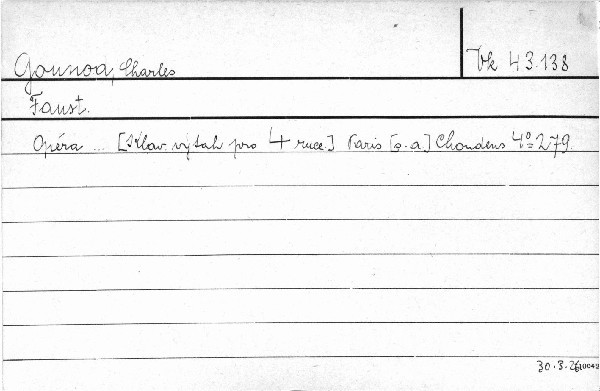 Gounod, Charles
Vk 43.138
Faust.
Opéra ... [Klav. výtah pro 4 ruce.] Paris [s.a.] Choudens 4° 279.
30.3.26